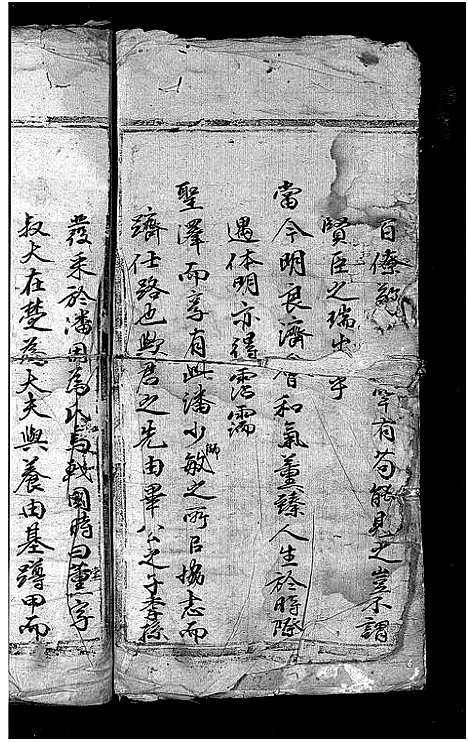 百僚
罕有苟能見之豈不謂
賢臣之瑞出乎
當今明良濟會和氣薰臻人生於時際
遇休明亦得霑濡
聖澤而享有此潘少敏之所以揚志而
師
躋仕路也歟君之先由畢公之子季孫
發采於潘因為氏戰國時曰董字
叔大在楚為大夫與養由基蹲甲而